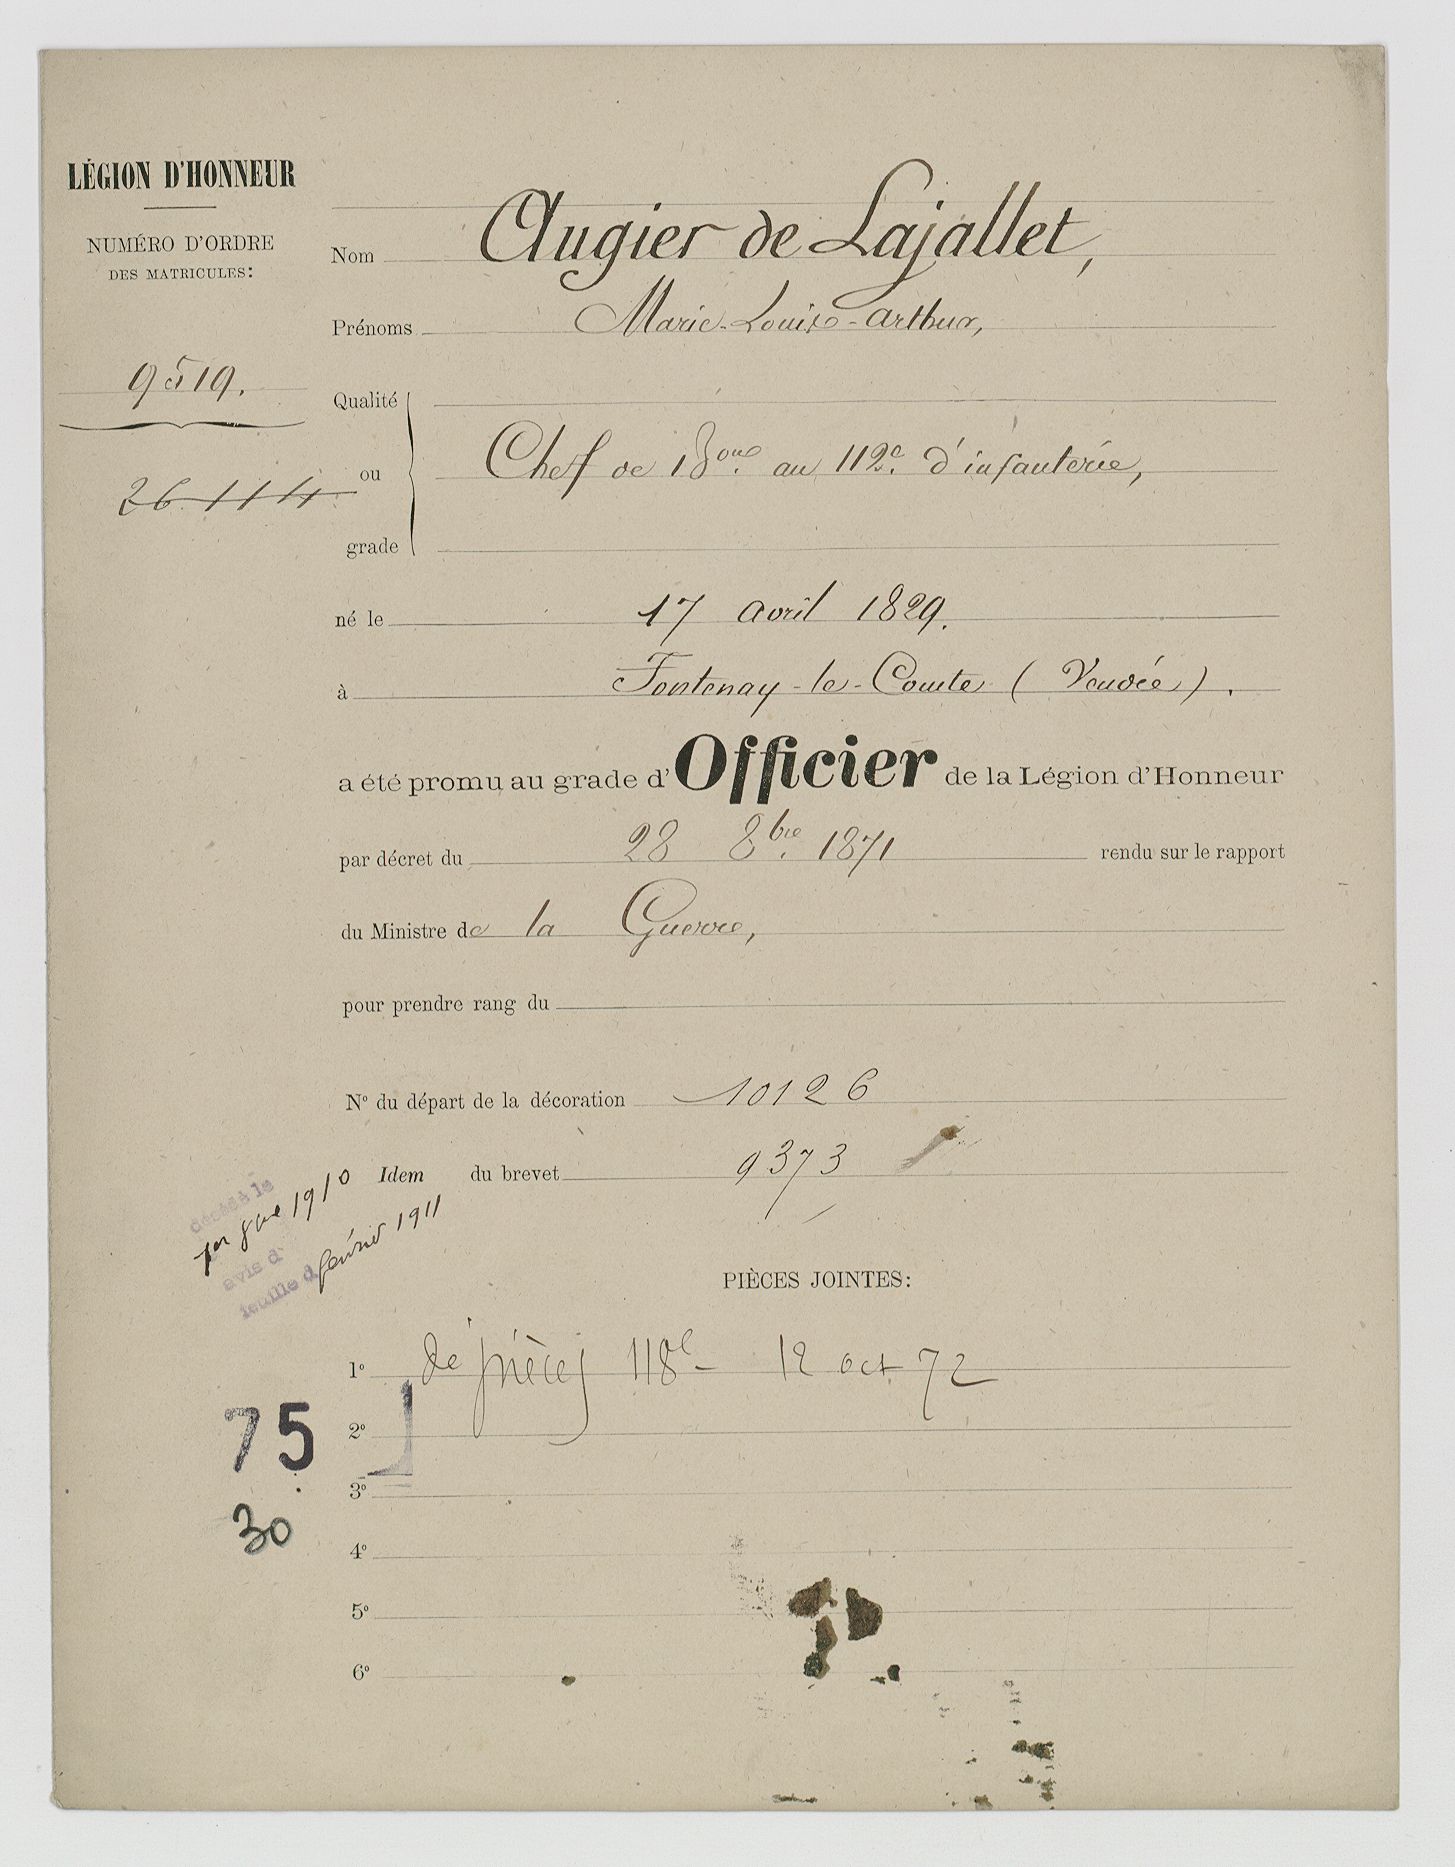 LÉGION D'HONNEUR
NUMÉRO D'ORDRE
DES MATRICULES:
9519.
26114
Nom Augier de Lajallet,
Prénoms Marie-Louis-Arthur,
Qualité
ou
grade
Chef de Bon. au 112e. d'infanterie,
né le 17 avril 1829.
à Fontenay-le-Comte (Vendée).
a été promu au grade d'Officier de la Légion d'Honneur
par décret du 28 8bre. 1871 rendu sur le rapport
du Ministre de la Guerre,
pour prendre rang du
N° du départ de la décoration 10126
Idem du brevet 9373
décédé le
1er 1910
avis d
feuille d février 1911
PIÈCES JOINTES:
1° de pièces 118e 12 oct 72
2°
3°
4°
5°
6°
75
30